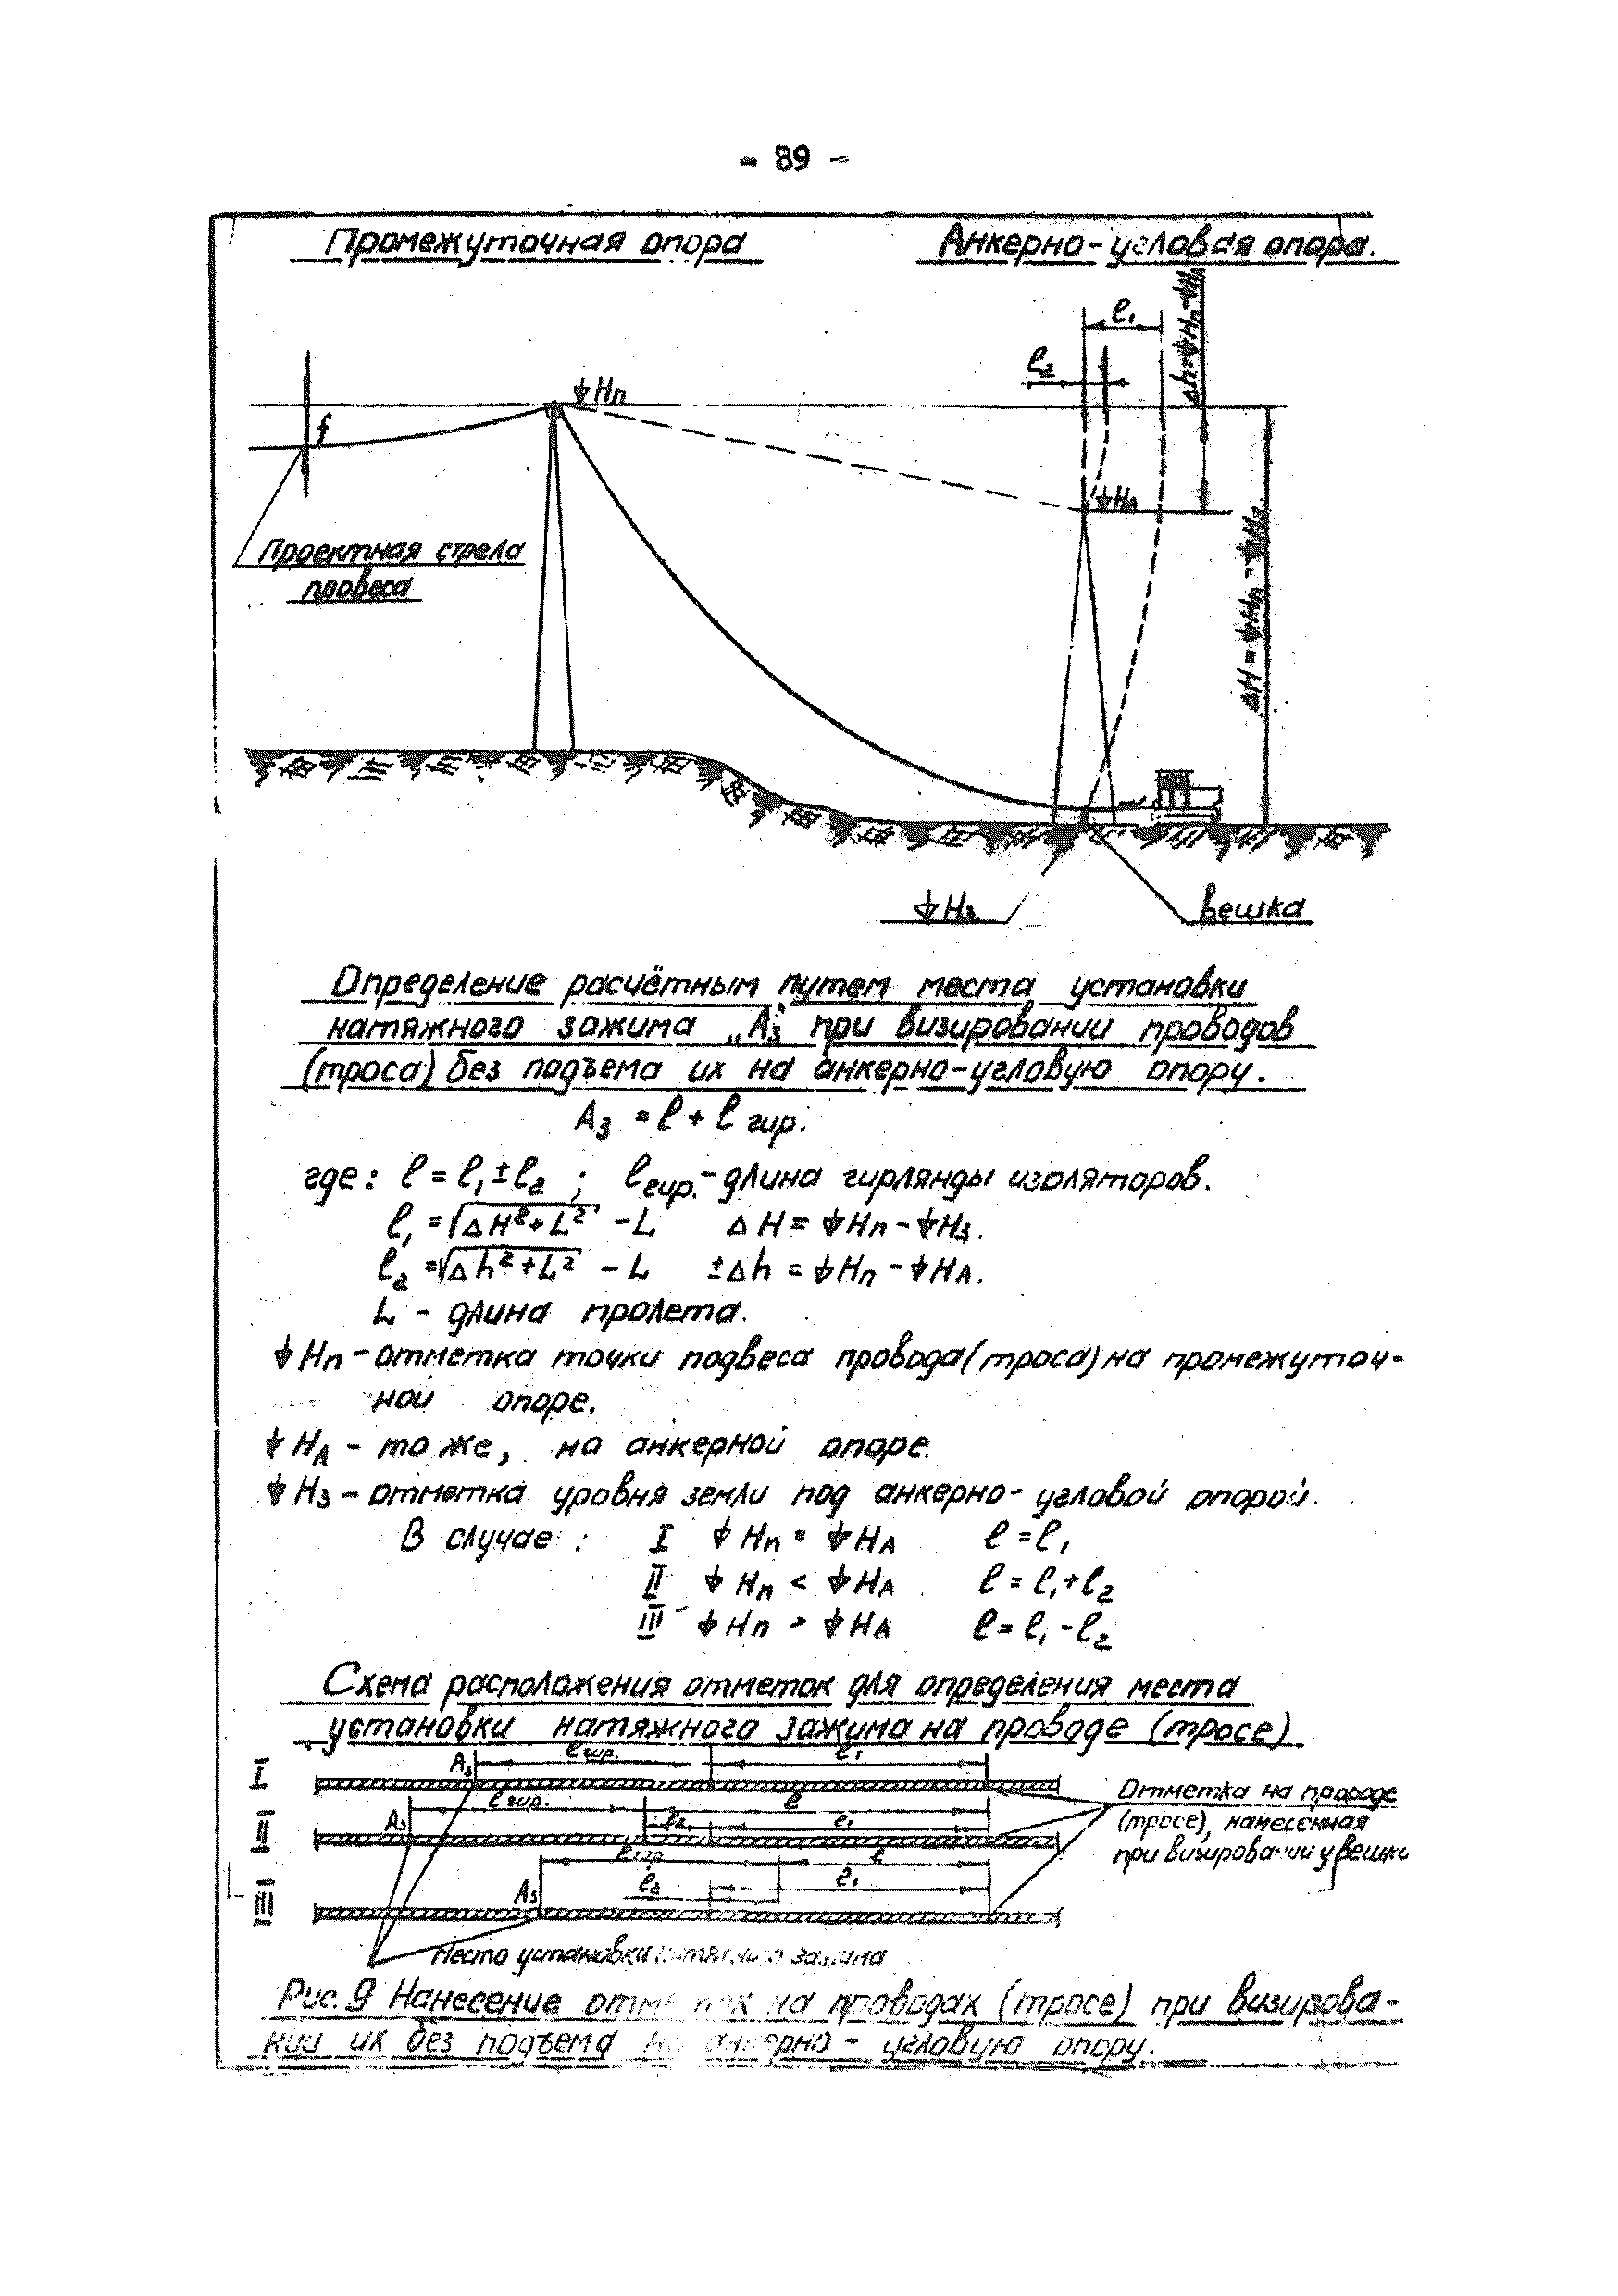 - 89 -
Промежуточная опора
Анкерно-угловая опора.
l₁
l₂
Δh=Hп-H
Hп
f
HА
Проектная стрела
провеса
ΔH = Hп - Hз
Hз
Вешка
Определение расчётным путем места установки
натяжного зажима „Аз" при визировании проводов
(троса) без подъема их на анкерно-угловую опору.
Аз = l + l гир.
где: l = l₁ ± l₂ ; l гир. - длина гирлянды изоляторов.
l₁ = √ΔH²+L² - L ΔH = Hп - Hз.
l₂ = √Δh²+L² - L ±Δh = Hп - HА.
L - длина пролета.
Hп - отметка точки подвеса провода(троса) на промежуточ-
ной опоре.
HА - то же, на анкерной опоре.
Hз - отметка уровня земли под анкерно-угловой опорой.
В случае : I Hп = HА l = l₁
II Hп < HА l = l₁+l₂
III Hп > HА l = l₁-l₂
Схема расположения отметок для определения места
установки натяжного зажима на проводе (тросе)
I Аз l гир. l₁
II Аз l гир. l l₂ l₁
III Аз l гир l l₂ l₁
Отметка на проводе
(тросе), нанесенная
при визировании у вешки
Место установки натяжного зажима
Рис. 9 Нанесение отметок на проводах (тросе) при визирова-
нии их без подъема на анкерно-угловую опору.